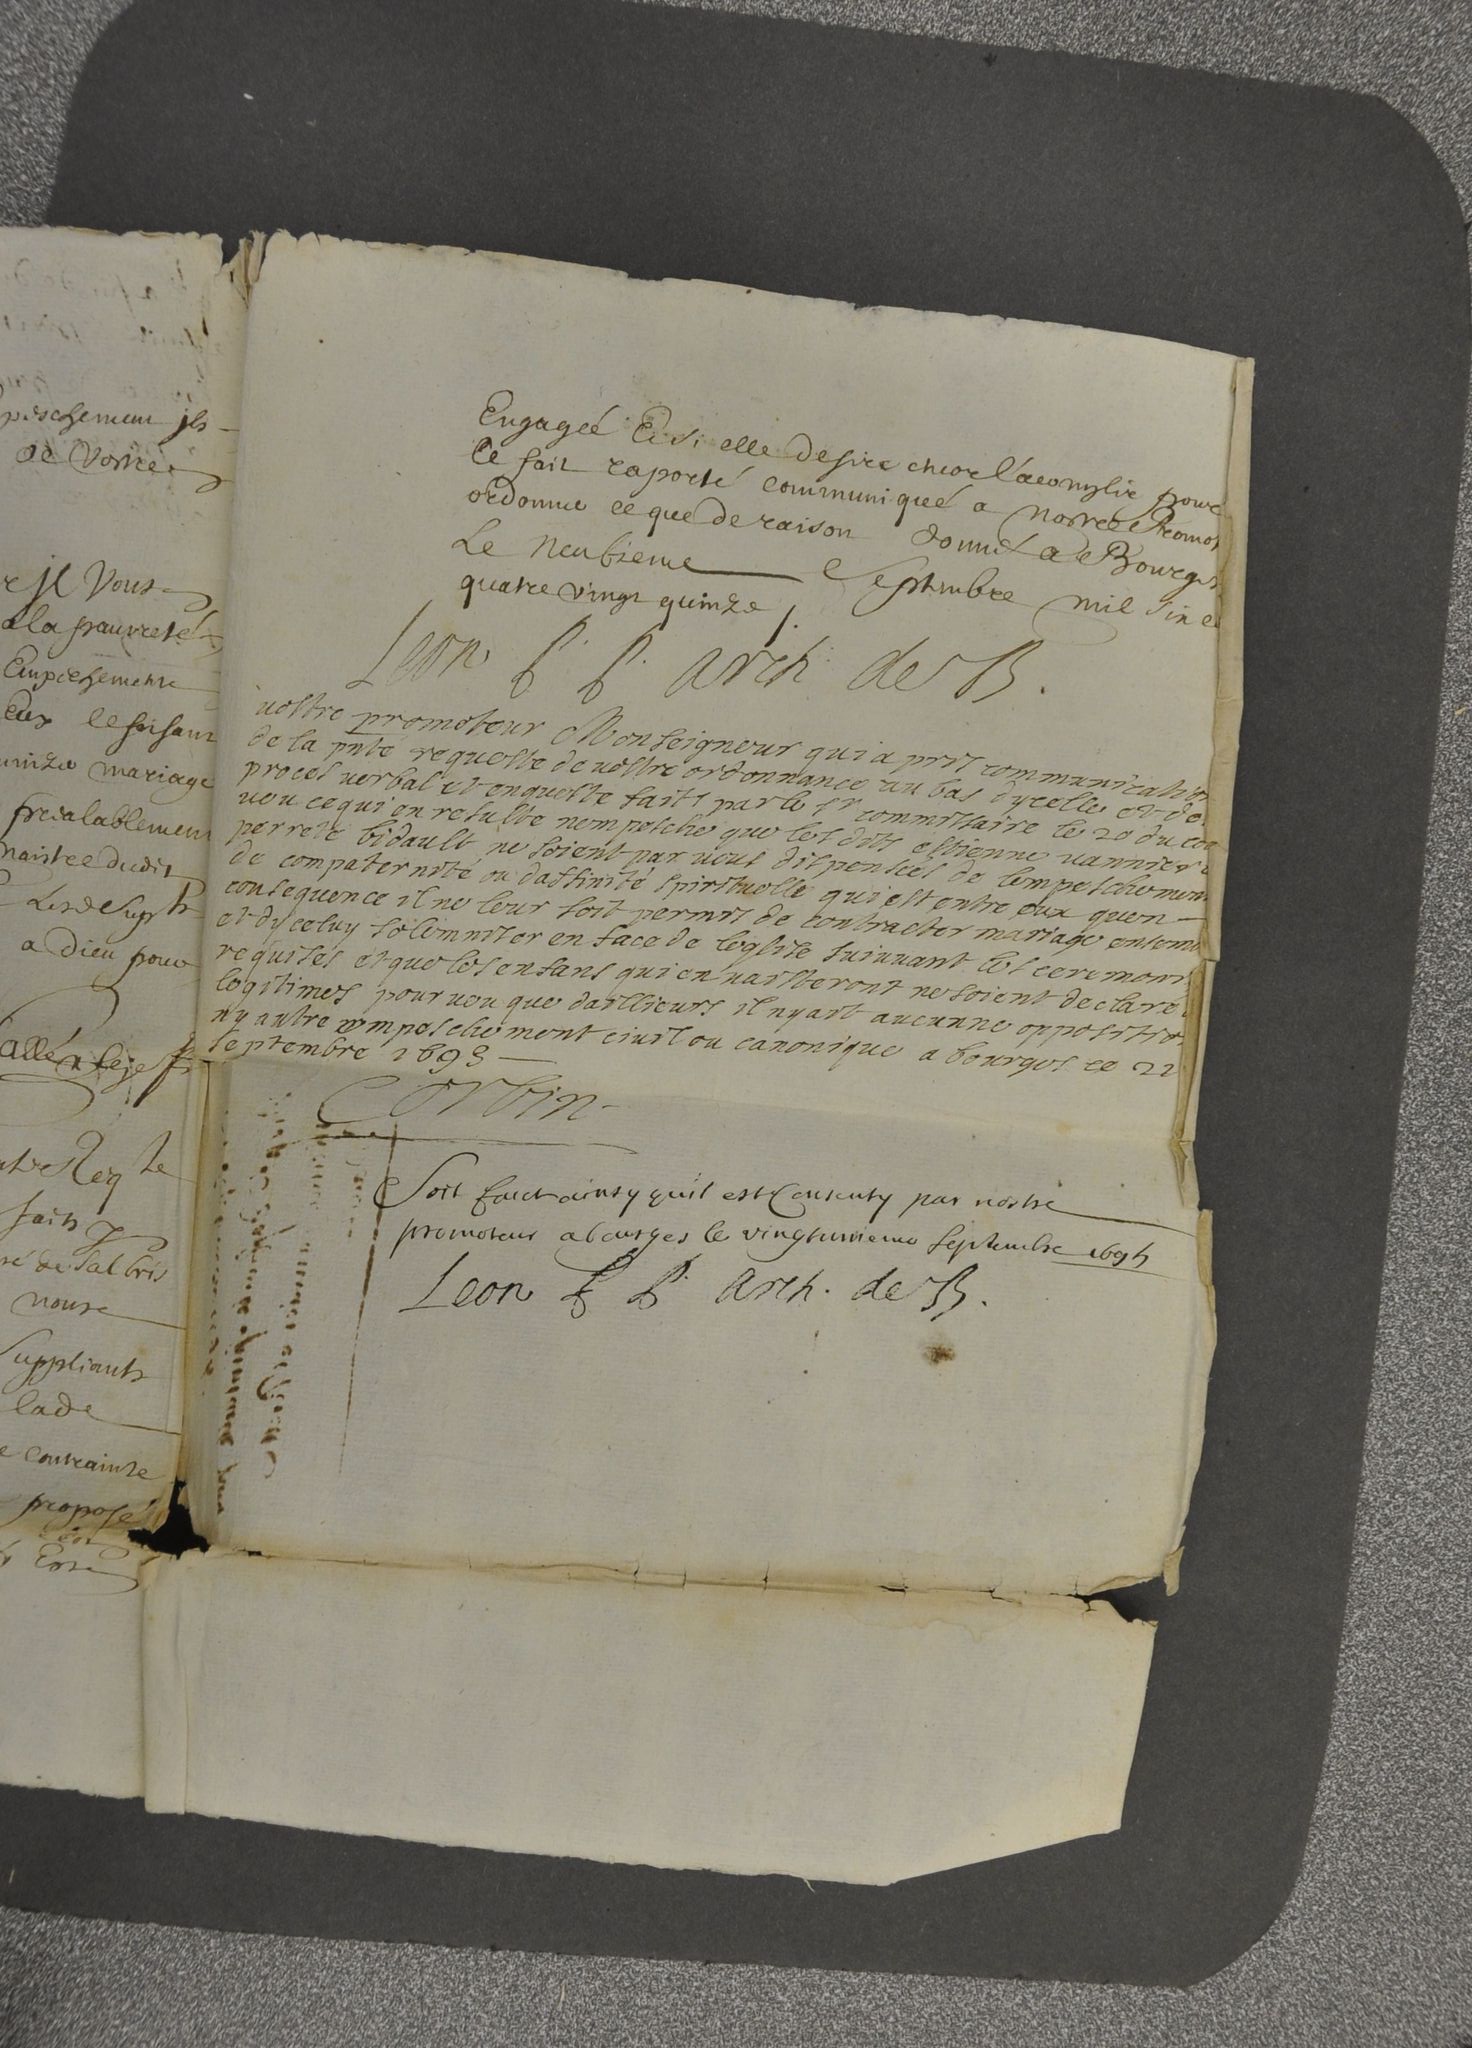 peschemens jls
de Vostre
e jl Vous
a la pauvreté
Empeschemens
Eux le faisant
mariage
prealablemen
dudit
a Dieu pour
Req te
faits
ré de Salbris
nourre
Suppliants
lade
e contrainte
proposé
Engageé Et si elle desire encor l'acomplir pour
le fait raporté communiqué a nostre Promot
ordonné ce que de raison donné a Bourges
Le neufieme Septembre mil six c
quatre vingt quinze /.
Leon P. P. arch. de B.
vostre promoteur Monseigneur qui a pris communication
de la pnte requeste de vostre ordonnance au bas dycelle et de
proces verbal et enqueste faits par le sr commissaire le 20 du cou
veu ce qui en resulte nempesche que lesdits estienne vannier e
perrete bidault ne soient par vous dispensés de lempeschemen
de compaternité ou daffinité spirituelle qui est entre eux quen
consequence il ne leur soit permis de contracter mariage ensem
et dyceluy solemniser en face de leglise suivant les ceremoni
requises et que les enfans qui en naistront ne soient declaré
legitimes pourveu que dailleurs il nyait aucunne oppositio
ny autre empeschement civil ou canonique a bourges ce 22
septembre 1695
Corbin
Soit faict ainsy quil est Consenty par nostre
promoteur a bourges le septembre 1695
Leon P. P. arch. de B.